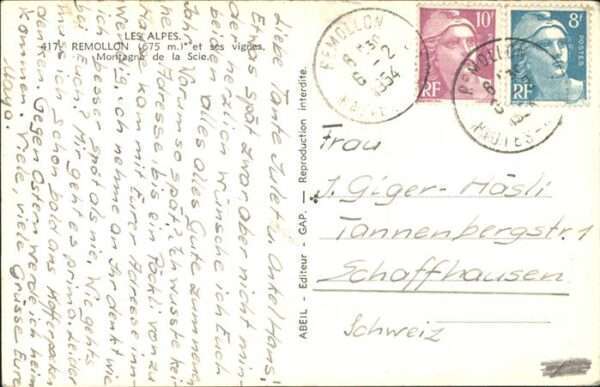 LES ALPES. -
417. REMOLLON (675 m.) et ses vignes.
Montagne de la Scie.
Liebe Tante Jule u. Onkel Hans!
Etwas spät zwar aber nicht min-
der herzlich wünsche ich Euch
beiden alles alles Gute zum neuen
Jahr. Warum so spät? Ich wusste kei-
ne Adresse, bis ein Päckli von zu
Hause kam mit Eurer Adresse inn-
wendig. Ich nehme an Ihr denkt wie
ich besser spät als nie. Wie gehts
bei Euch? Mir geht es prima. Leider
muss ich schon bald ans Kofferpacken
denken. Gegen Ostern werde ich heim
kommen. Viele, viele Grüsse Eure
Maya.
ABEIL - Editeur - GAP. — Reproduction interdite.
REMOLLON
6 - 2
1954
10F
RF
8F
POSTES
RF
REMOLLON
POSTES
Frau
J. Giger-Häsli
Tannenbergstr. 1
Schaffhausen
Schweiz